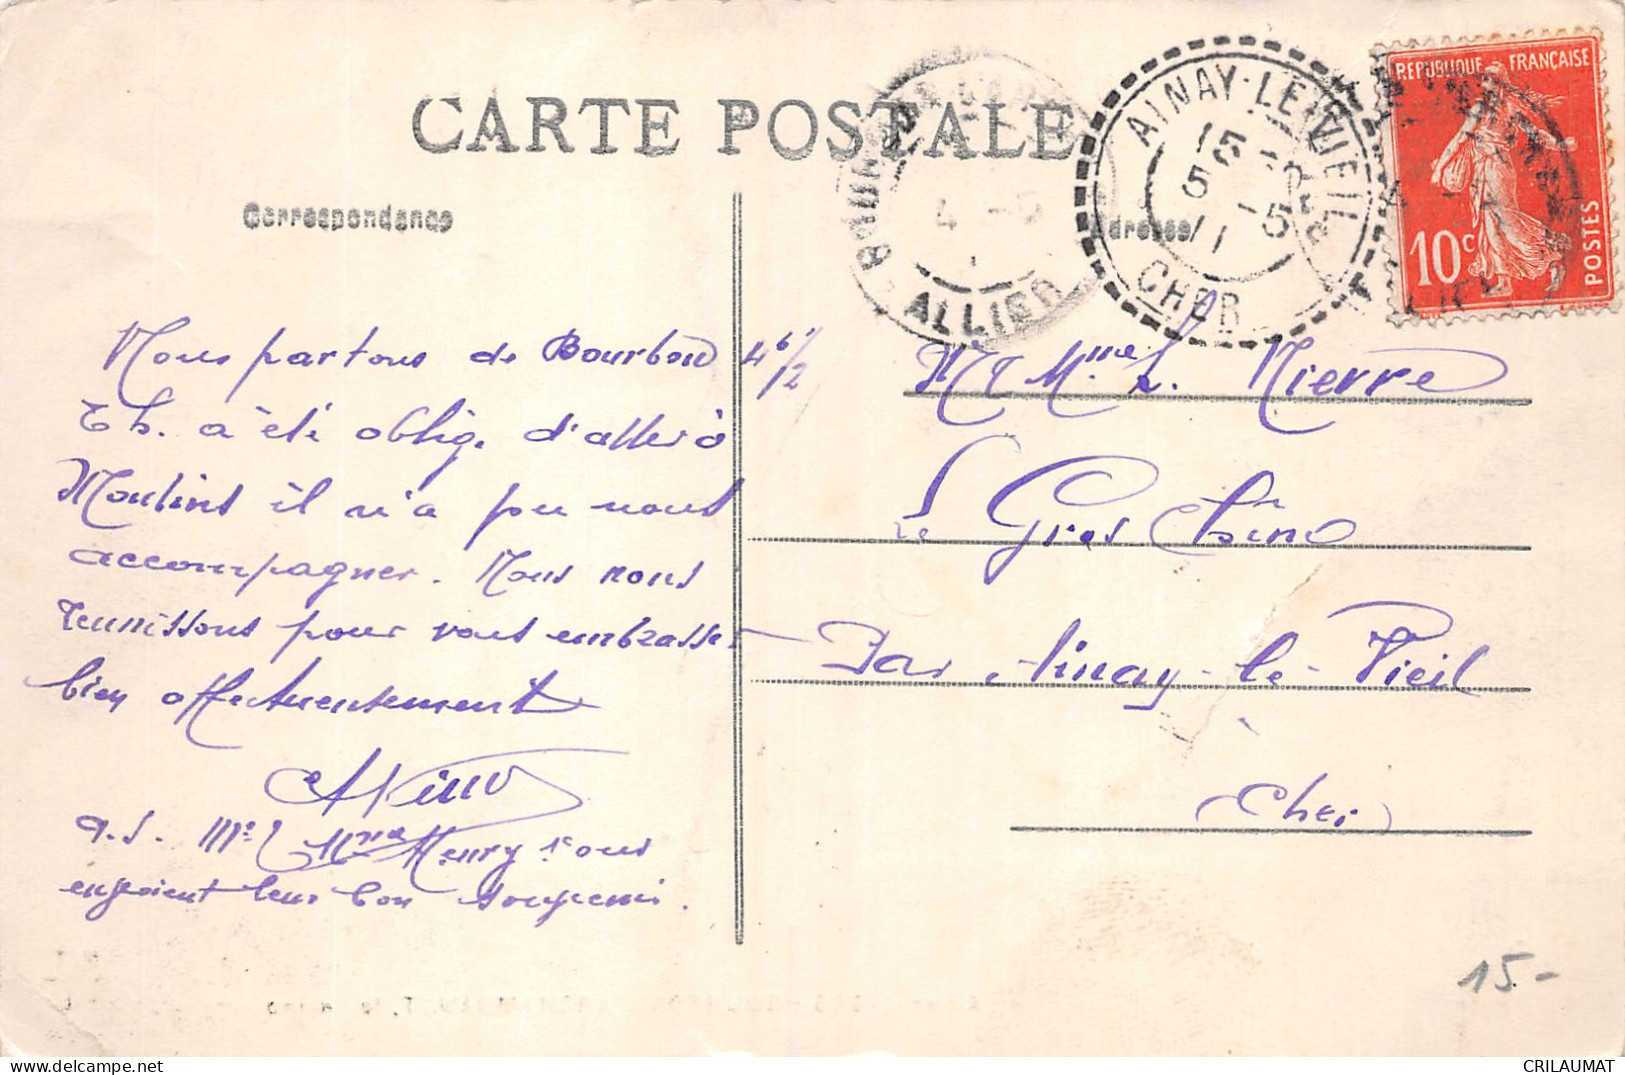 CARTE POSTALE
Correspondance
Adresse
BOURBON
4 -5
ALLIER
AINAY-LE-VIEIL
15
5 -5
11
CHER
REPUBLIQUE FRANÇAISE
10c
POSTES
Nous partons de Bourbon 4 h 1/2
Th. a été obligé d'aller à
Moulins il n'a pu nous
accompagner. Nous nous
reunissons pour vous embrasser
bien affectueusement
P.S. Mr & Mme Henry vous
envoient leur bon souvenir.
M & Mme L. Mierre
Le Gros Chêne
Par Ainay-le-Vieil
(Cher)
15-
CRILAUMAT